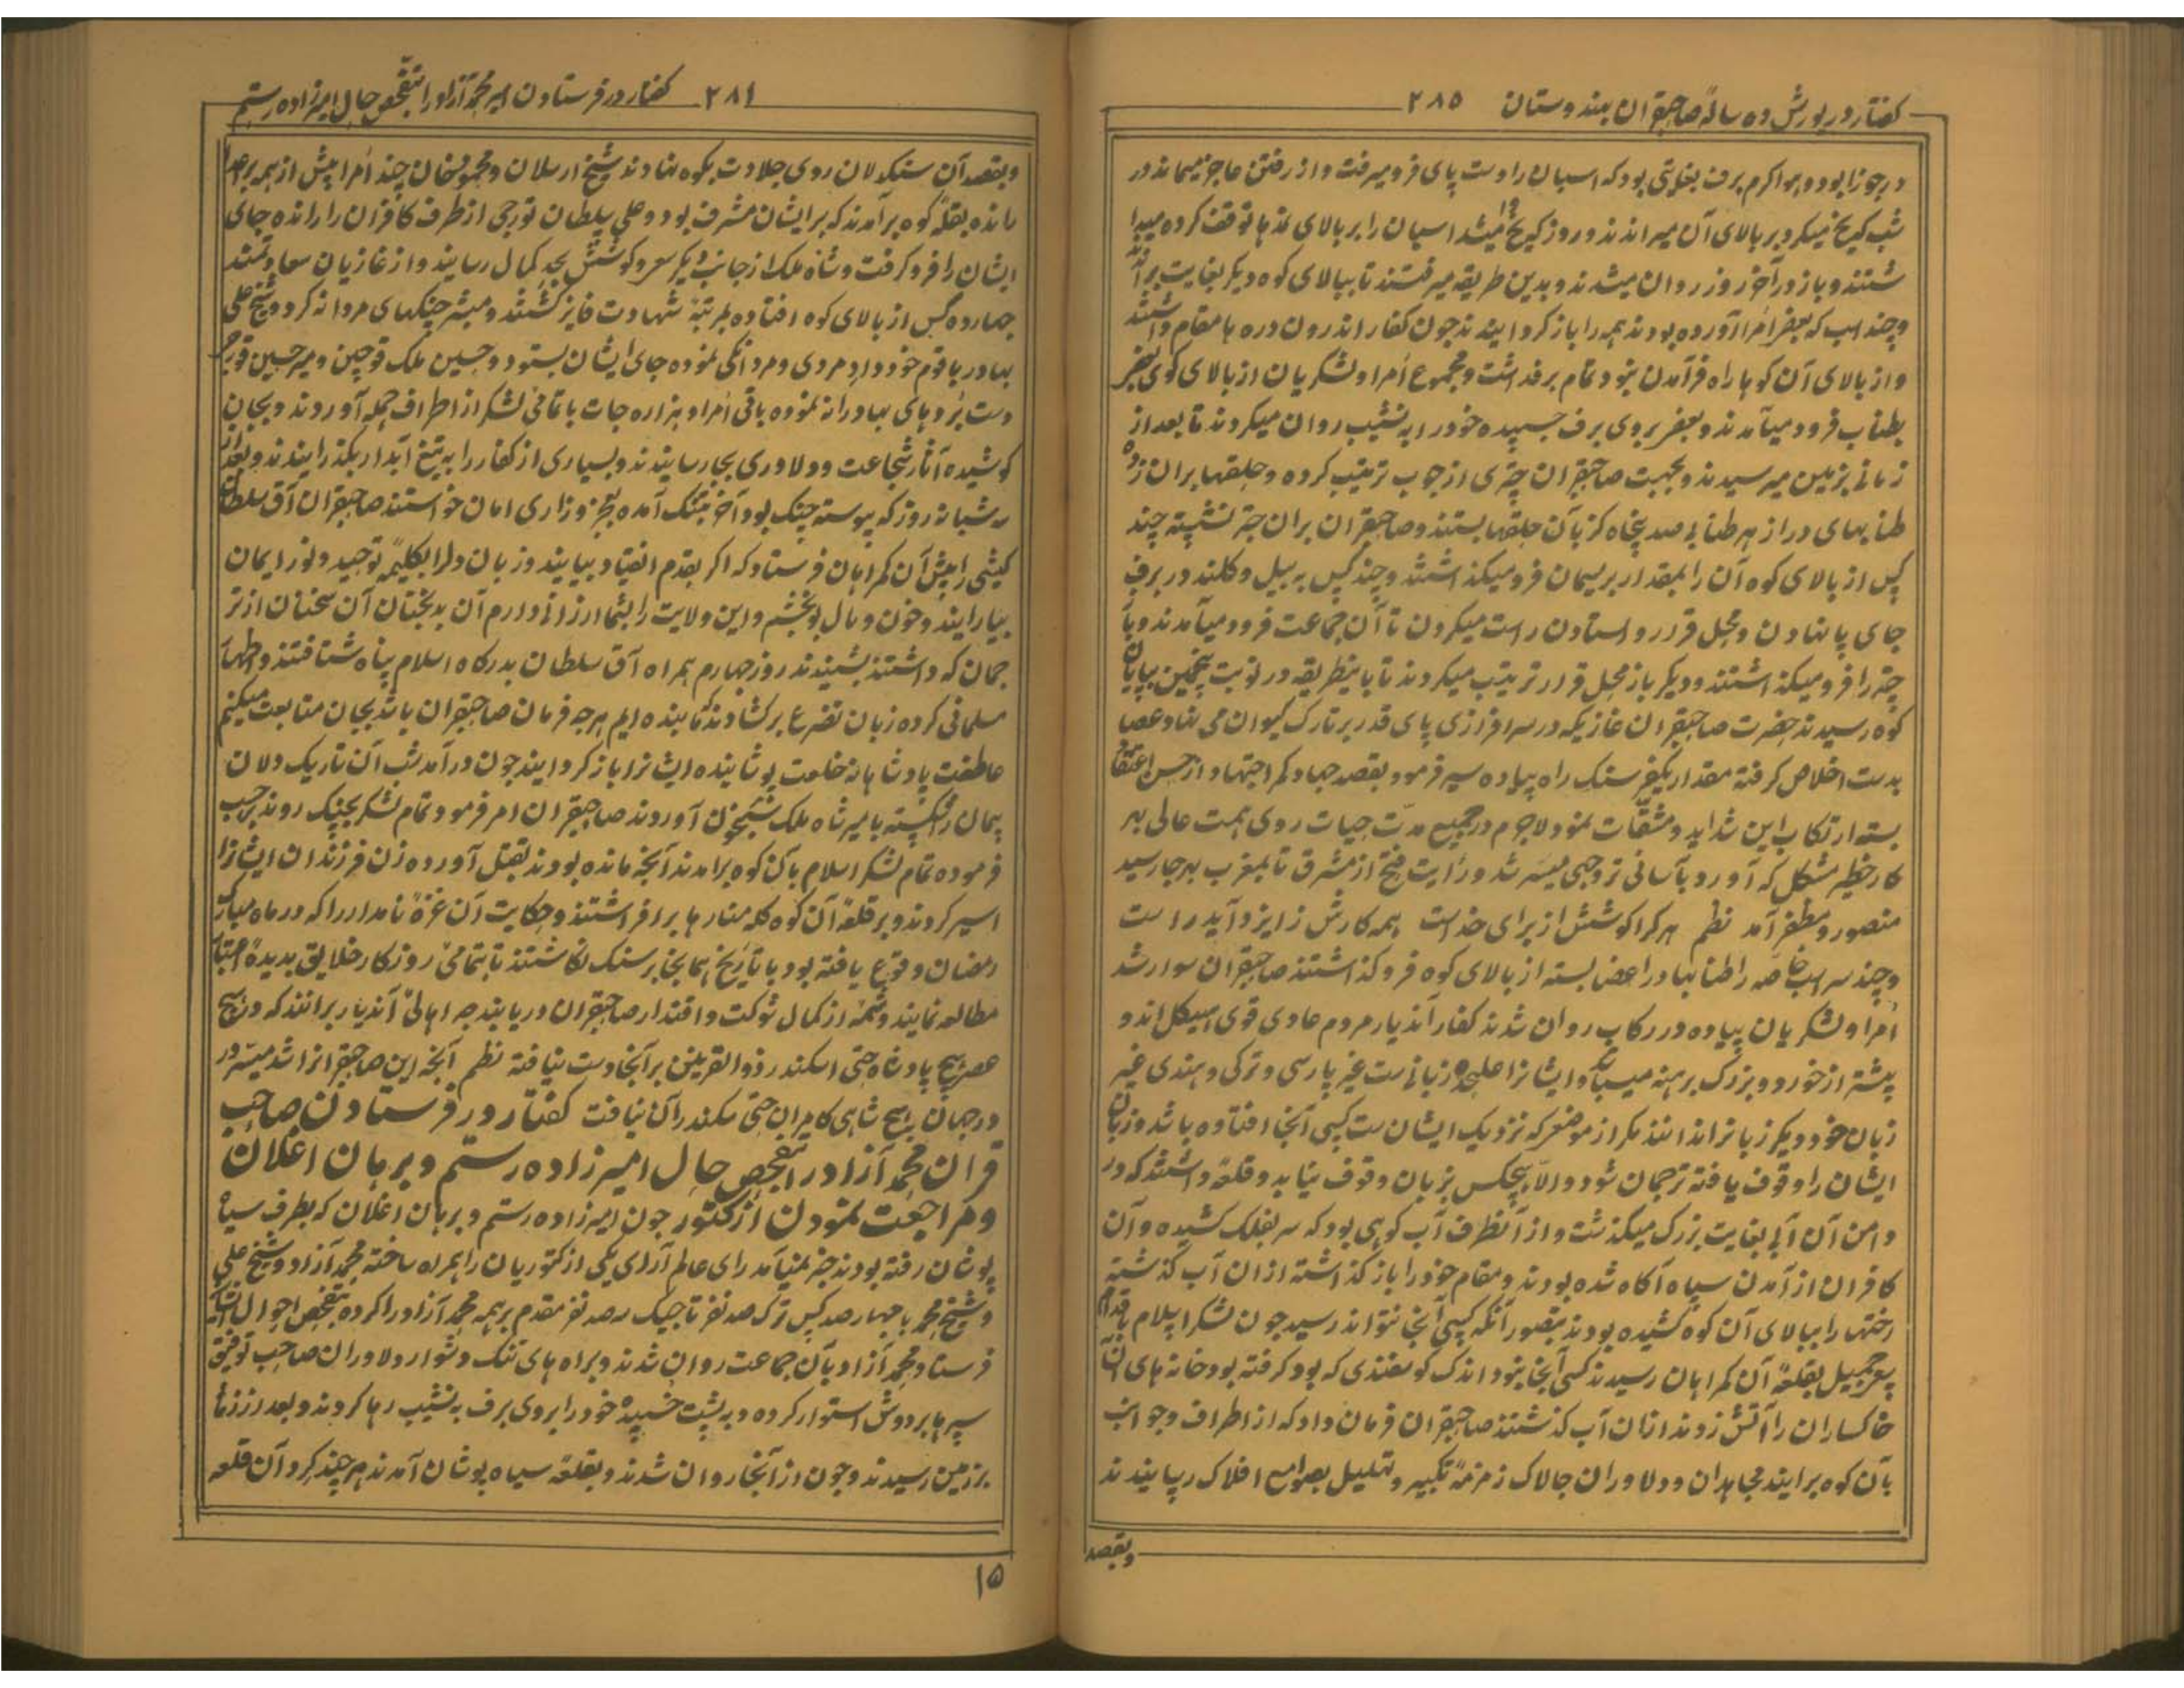 گفتار در یورش ده ساله صاحبقران بهندوستان ۲۸۵
در جوزا بود و هوا گرم برف بغایتی بود که اسبان را دست پای فرو میرفت و از رفتن عاجز میماند در
شب که یخ میکرد بر بالای آن میراندند و روز که یخ وا میشد اسبان را بر بالای نمدها توقف کرده میدا
شتند و باز در آخر روز روان میشدند و بدین طریقه میرفتند تا ببالای کوه دیگر بغایت برآمدند
و چند اسب که بعضی امرا آورده بودند همه را باز گردانیدند چون کفار اندرون دره ها مقام داشتند
و از بالای آن کوه ها راه فرآمدن نبود تمام برف داشت و مجموع امرا و لشکریان از بالای کوی بعضی
بطناب فرود میآمدند و بعضی بروی برف چسپیده خود را به نشیب روان میکردند تا بعد از
زمانی بزمین میرسیدند و بجهت صاحبقران چتری از چوب ترتیب کرده و حلقها بران زده
طنابهای دراز هر طنابی صد پنجاه گز بآن حلقها بستند و صاحبقران بران چتر نشسته چند
کس از بالای کوه آن را بمقدار ریسمان فرو میگذاشتند و چند کس به بیل و کلند در برف
جای پا نهادن و محل قرار و استادن راست میکردن تا آن جماعت فرود میآمدند و باز
چتر را فرو میگذاشتند و دیگر باز محل قرار ترتیب میکردند تا باینطریقه در نوبت پنجمین بپایان
کوه رسیدند حضرت صاحبقران غازی که در سرافرازی پای قدر بر تارک کیوان می نهاد عصا
بدست اخلاص گرفته مقدار یکفرسنگ راه پیاده سیر فرمود بقصد جهاد کمر اجتهاد از حسن اعتقاد
بسته ارتکاب این شداید و مشقّات نمود لاجرم در جمیع مدّت حیات روی همت عالی بهر
کار خطیر مشکل که آورد بآسانی تر وجهی میسّر شد و رایت فتح از مشرق تا بمغرب بهر جا رسید
منصور و مظفر آمد نظم هر که را کوشش از برای خداست همه کارش ز ایزد آید راست
و چند سر اسب خاصه را طنابها در اعضا بسته از بالای کوه فرو گذاشتند صاحبقران سوار شد
امرا و لشکریان پیاده در رکاب روان شدند کفار آندیار مردم عادی قوی هیکل اند و
بیشتر از خورد و بزرگ برهنه میباشند و ایشان را علیحده زبانی ست غیر پارسی و ترکی و هندی غیر
زبان خود دیگر زبان را ندانند مگر از موضعی که نزدیک ایشان ست کسی آنجا افتاده باشد و زبان
ایشان را وقوف یافته ترجمان شود والاّ هیچکس بزبان وقوف نیابد و قلعه داشتند که در
دامن آن آبی بغایت بزرگ میگذشت و از آنطرف آب کوهی بود که سر بفلک کشیده و آن
کافران از آمدن سپاه آگاه شده بودند و مقام خود را باز گذاشته ازان آب گذشته
رختها را ببالای آن کوه کشیده بودند بتصور آنکه کسی آنجا نتواند رسید چون لشکر اسلام باقدام
سعی جمیل بقلعهٔ آن گمراهان رسیدند کسی آنجا نبود اندک گوسفندی که بود گرفته بود خانه های آن
خاکساران را آتش زدند ازان آب گذشتند صاحبقران فرمان داد که از اطراف و جوانب
بآن کوه برآیند مجاهدان و دلاوران چالاک زمزمهٔ تکبیر و تهلیل بصوامع افلاک رسانیدند
وبقصد
۲۸۱ گفتار در فرستادن امیر محمد آزاد را بتفحص حال امیرزاده رستم
وبقصد آن سنگدلان روی جلادت بکوه نهادند شیخ ارسلان و محمودخان چند امرا پیش از همه بر
رانده بقلهٔ کوه برآمدند که بر ایشان مشرف بود و علی سلطان تواچی از طرف کافران را رانده جای
ایشان را فرو گرفت و شاه ملک از جانب دیگر سعی و کوشش بحد کمال رسانیدند و از غازیان سعادتمند
چهارده کس از بالای کوه افتاده بمرتبهٔ شهادت فایز گشتند و مبشر جنگهای مردانه کرد و شیخ علی
بهادر با قوم خود داد مردی و مردانگی نموده جای ایشان بستود و حسین ملک قوچین و میر حسین قورچی
دست بردهای بهادرانه نموده باقی امرا و هزاره جات با تمامی لشکر از اطراف حمله آوردند و بجان
کوشیده آثار شجاعت و دلاوری بجا رسانیدند و بسیاری از کفار را به تیغ آبدار بگذرانیدند و بعد از
سه شبانه روز که پیوسته جنگ بود آخر بتنگ آمده بعجز و زاری امان خواستند صاحبقران آق سلطان
کیشی را پیش آن گمراهان فرستاد که اگر بقدم انقیاد بیایند و زبان و دل را بکلمهٔ توحید و نور ایمان
بیارایند و خون و مال بو بخشم و این ولایت را بشما ارزانی دارم آن بدبختان آن سخنان از تر
جمان که داشتند بشنیدند روز چهارم همراه آق سلطان بدرگاه اسلام پناه شتافتند و اظهار
مسلمانی کرده زبان تضرع برگشادند که ما بنده ایم هرچه فرمان صاحبقران باشد بجان متابعت میکنم
عاطفت پادشاهانه خلعت پوشانیده ایشان را باز گردانید چون درآمد شب آن تاریک دلان
پیمان را شکسته با میر شاه ملک شبیخون آوردند صاحبقران امر فرمود تمام لشکر بجنگ روند برحسب
فرموده تمام لشکر اسلام بآن کوه برآمدند آنچه مانده بودند بقتل آورده زن فرزندان ایشان را
اسیر کردند و بر قلهٔ آن کوه کله منارها برافراشتند و حکایت آن غزهٔ نامدار را که در ماه مبارک
رمضان وقوع یافته بود با تاریخ همانجا بر سنگ نگاشتند تا بتمامی روزگار خلایق بدیدهٔ اعتبار
مطالعه نمایند و شمه از کمال شوکت و اقتدار صاحبقران دریابند چه اهالی آندیار برانند که در هیچ
عصر هیچ پادشاه حتی اسکندر ذوالقرنین برآنجا دست نیافته نظم آنچه این صاحبقران را شد میسّر در
در جهان هیچ شاهی کامران حتی سکندر آن نیافت گفتار در فرستادن صاحب
قران محمد آزاد را بتفحص حال امیرزاده رستم و برهان اغلان
و مراجعت نمودن از کتور چون امیرزاده رستم و برهان اغلان که بطرف سیاه
پوشان رفته بودند خبر نمیآمد رای عالم آرای یکی از کتوریان را همراه ساخته محمد آزاد و شیخ علی
و شیخ محمد با چهارصد کس ترک صد نفر تاجیک سه صد نفر مقدم بر همه محمد آزاد را کرده بتفحص احوال ایشان
فرستاد محمد آزاد بآن جماعت روان شدند و براه های تنگ و دشوار دلاوران صاحب توفیق
سپرها بر دوش استوار کرده و به پشت خسپیده خود را بروی برف به نشیب رها کردند و بعد از زمانی
بزمین رسیدند و چون از آنجا روان شدند و بقلعهٔ سیاه پوشان آمدند هر چند گرد آن قلعه
۱۵